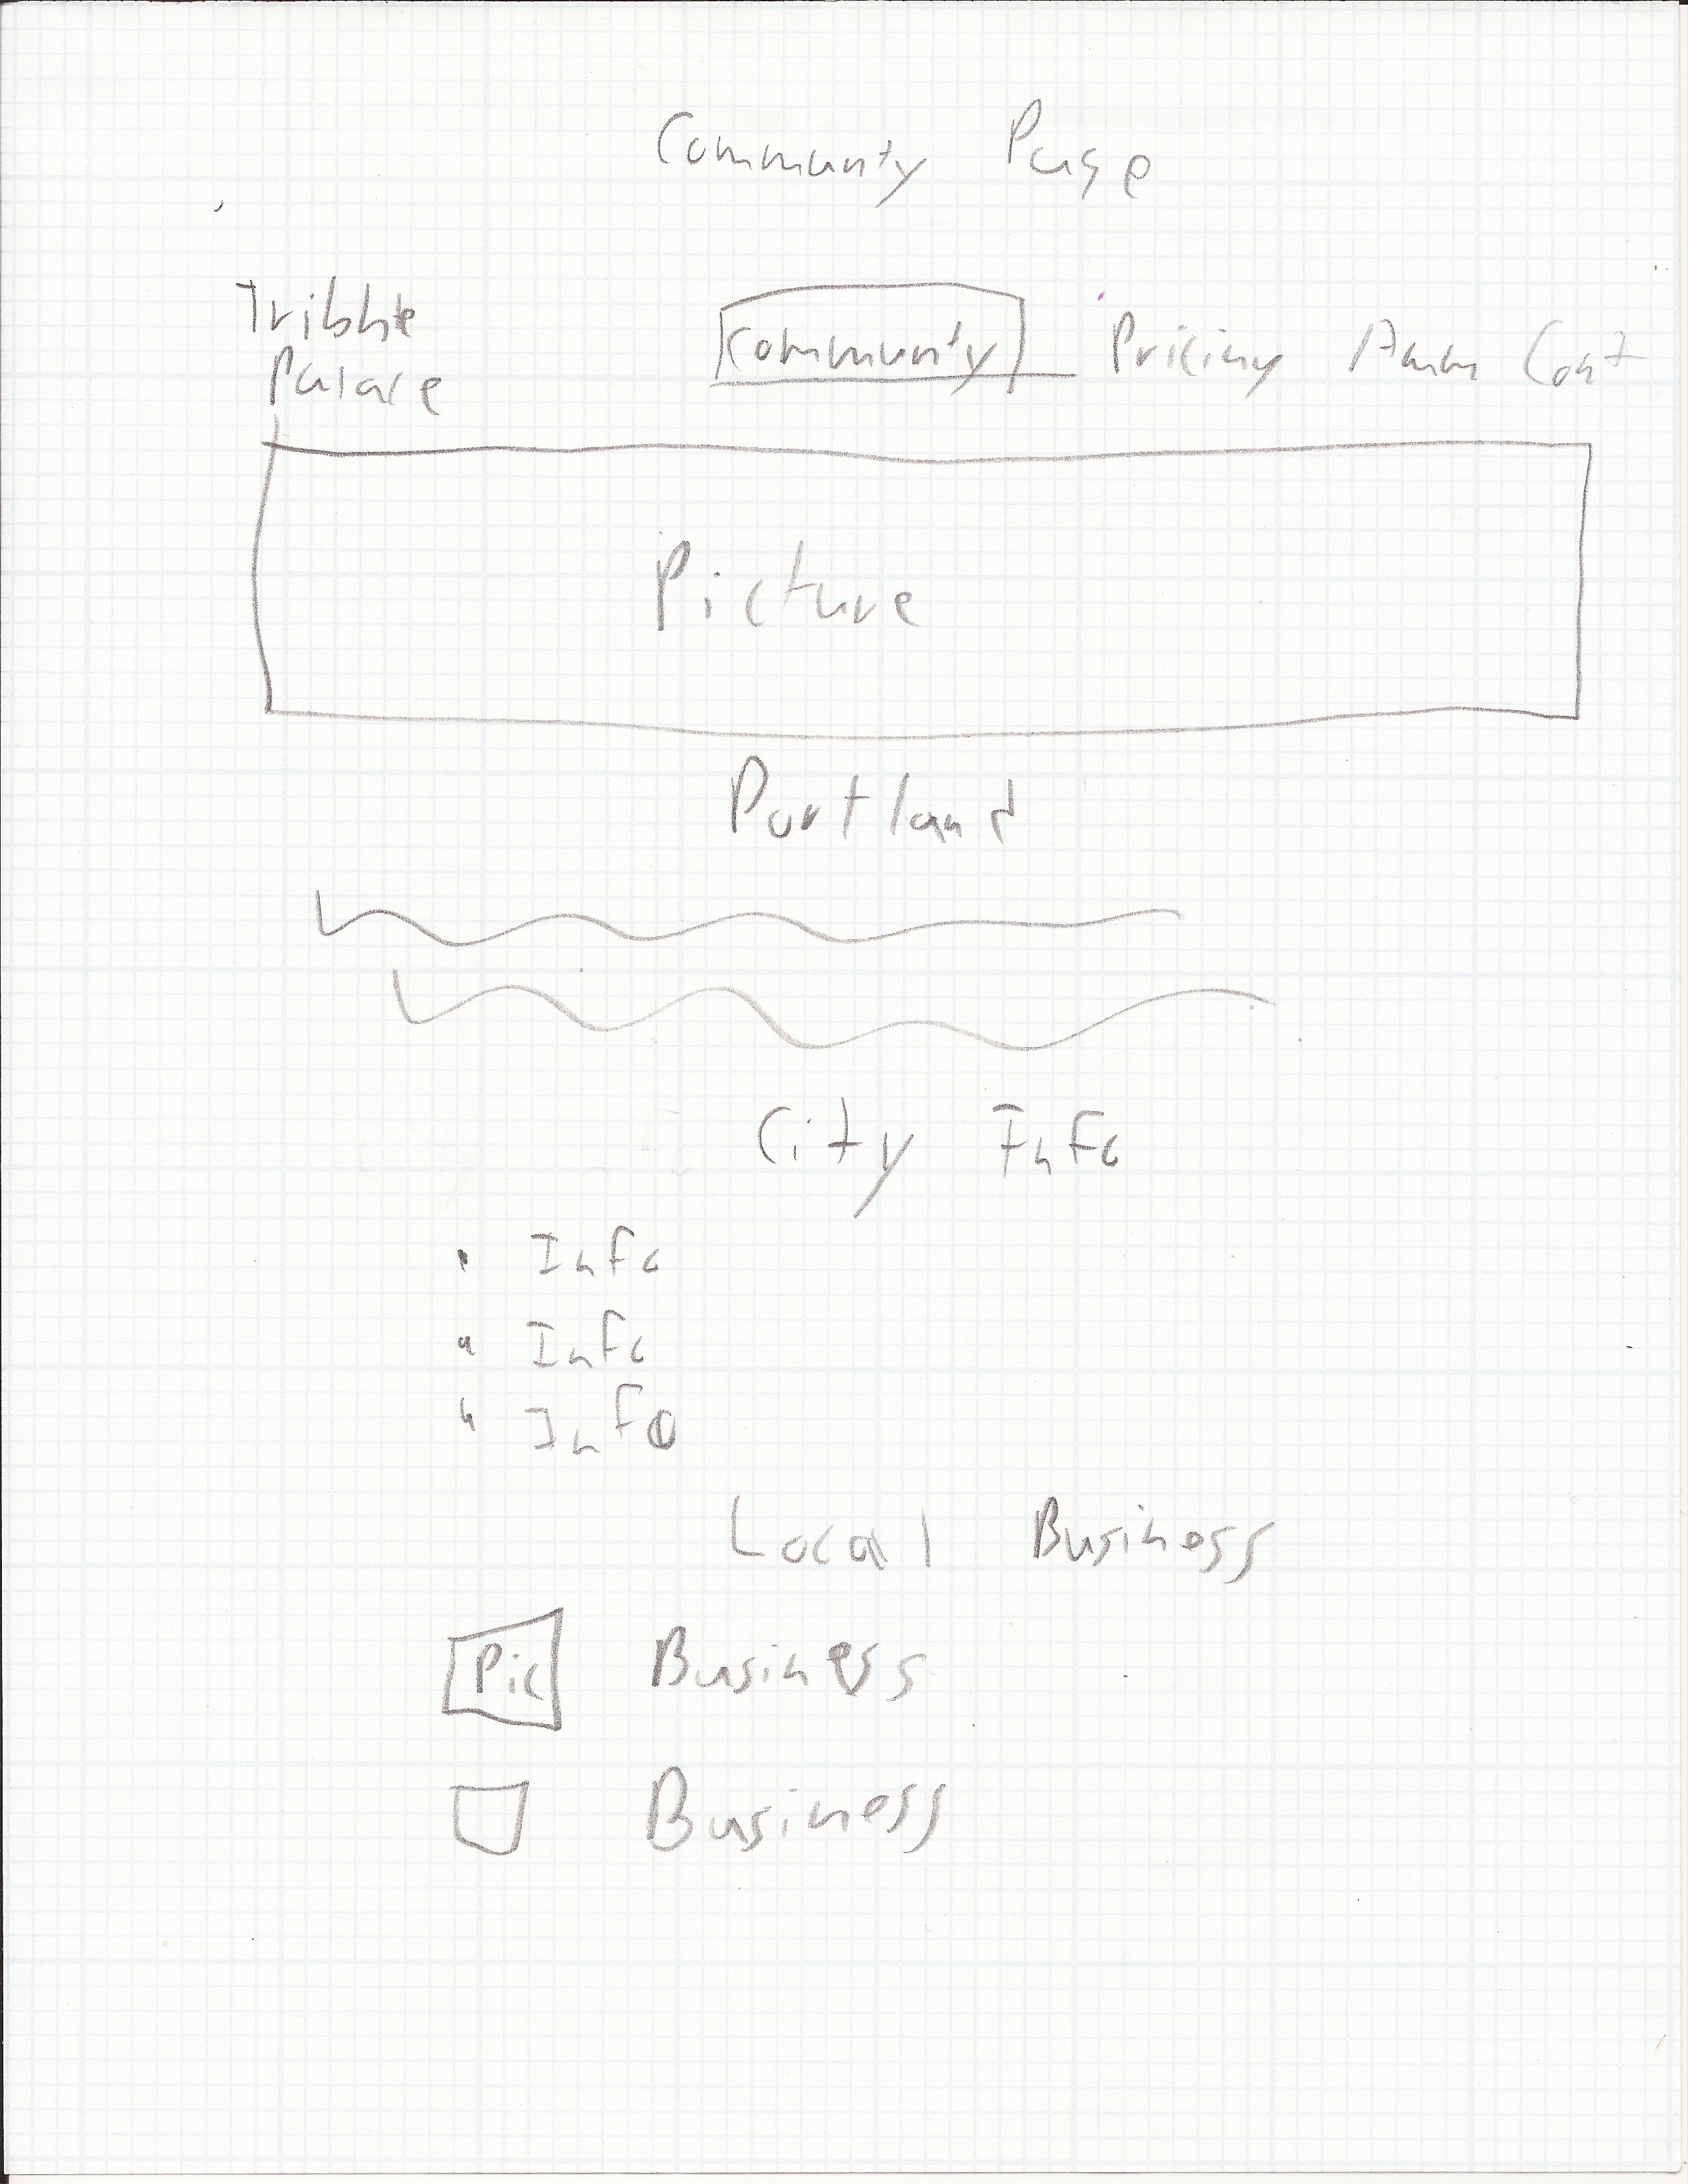 Community Page
Tribble
Palace
Community Pricing Amm Cont
Picture
Portland
City Info
• Info
• Info
• Info
Local Business
Pic Business
Business